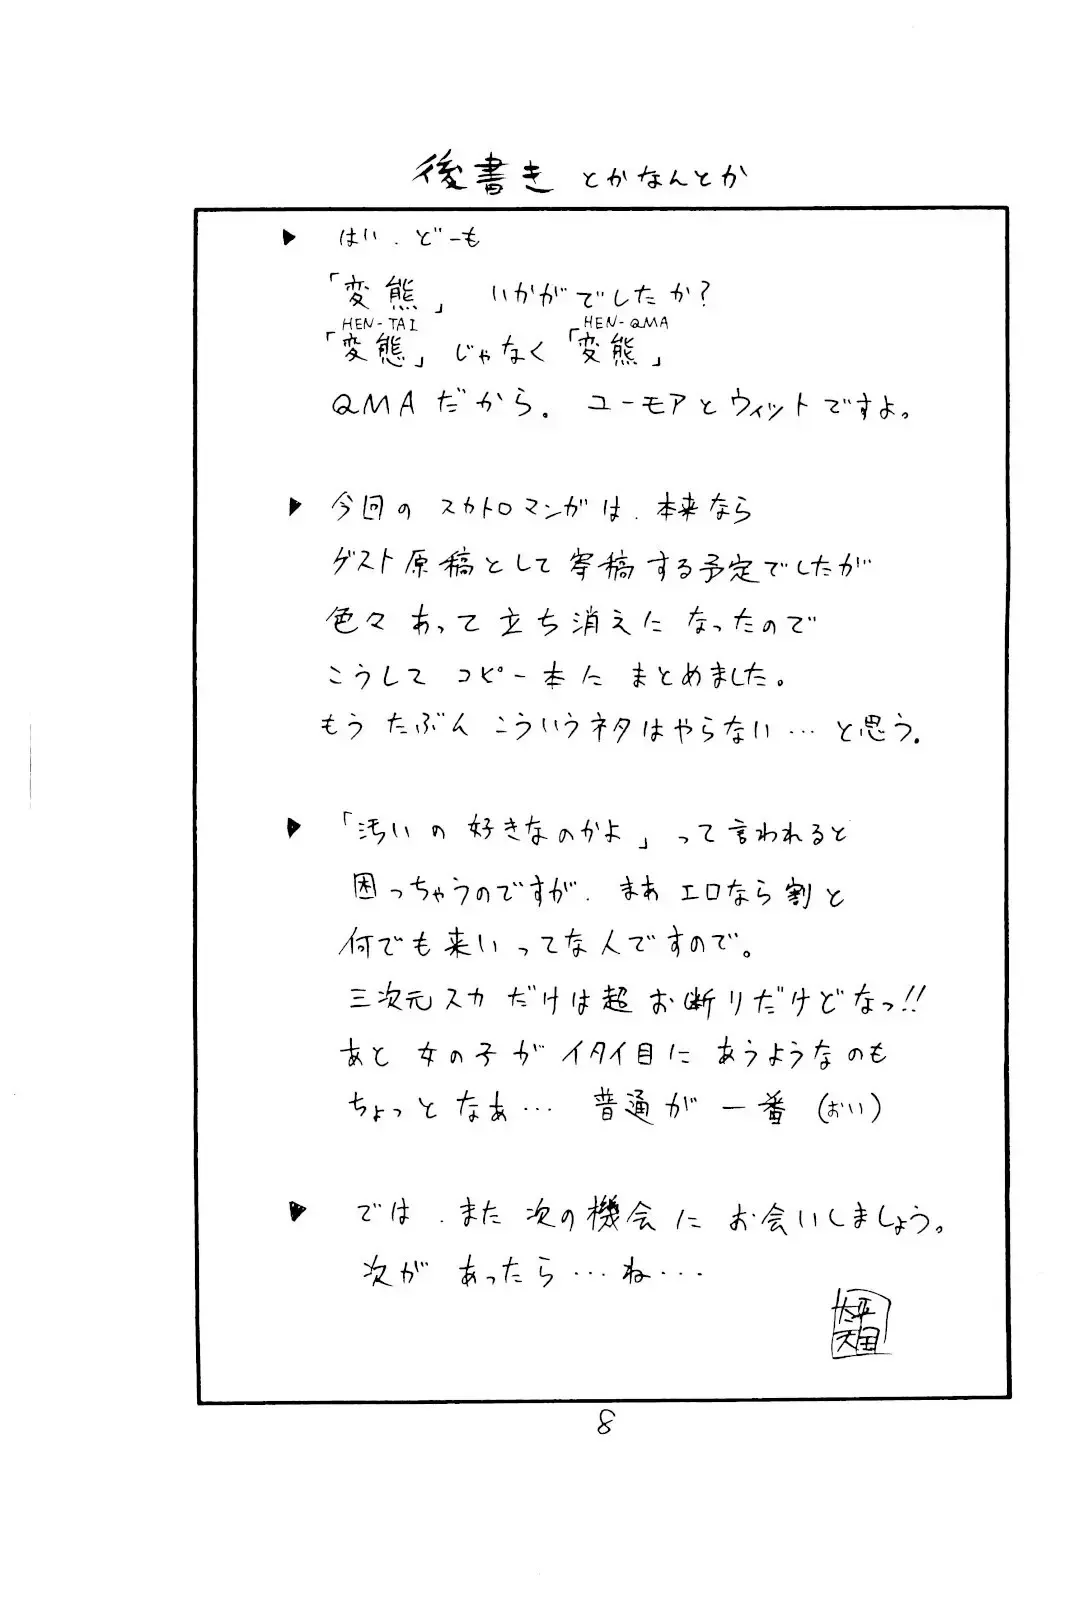 後書き とかなんとか
▶ はい、どーも
「変熊」 いかがでしたか?
HEN-TAI HEN-QMA
「変態」じゃなく「変熊」
QMAだから。ユーモアとウィットですよ。
▶ 今回の スカトロマンガは、本来なら
ゲスト原稿として寄稿する予定でしたが
色々あって立ち消えに なったので
こうして コピー本に まとめました。
もう たぶん こういうネタはやらない…と思う。
▶ 「汚いの 好きなのかよ」って言われると
困っちゃうのですが、まあ エロなら割と
何でも来いってな人ですので。
三次元スカ だけは超 お断りだけどなっ!!
あと 女の子が イタイ目に あうようなのも
ちょっと なあ… 普通が 一番 (おい)
▶ では、また 次の機会に お会いしましょう。
次が あったら…ね…
太平
天国
8